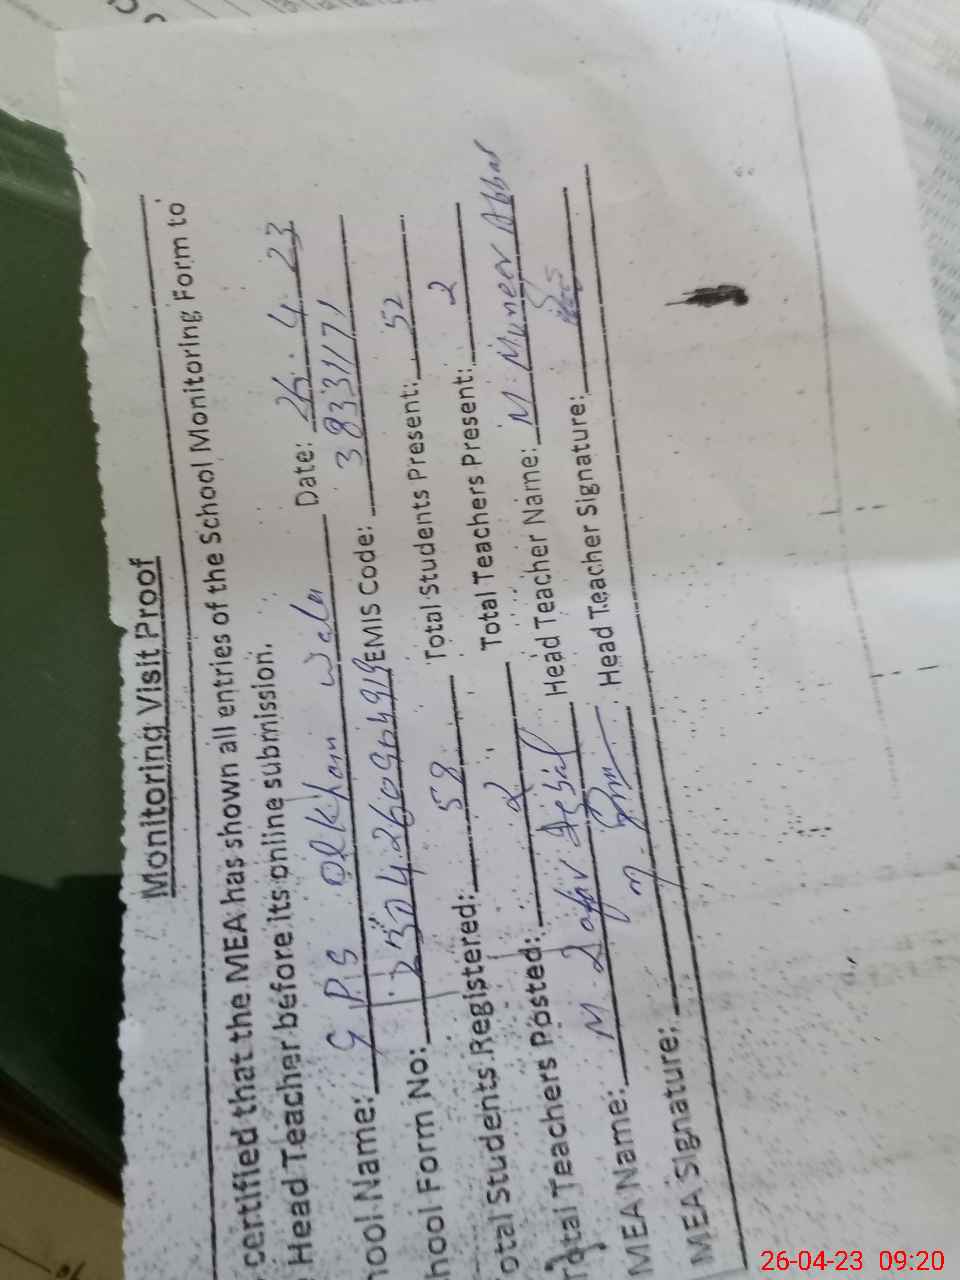 Monitoring Visit Proof
certified that the MEA has shown all entries of the School Monitoring Form to
Head Teacher before its online submission.
hool Name: G P/S Date: 26. 4. 23
hool Form No: EMIS Code: 3 8331171
otal Students Registered: 58 Total Students Present: 52
Total Teachers Posted: 2 Total Teachers Present: 2
MEA Name: M. Zafar Iqbal Head Teacher Name: M. Muneer Abbas
MEA Signature: Head Teacher Signature:
26-04-23 09:20